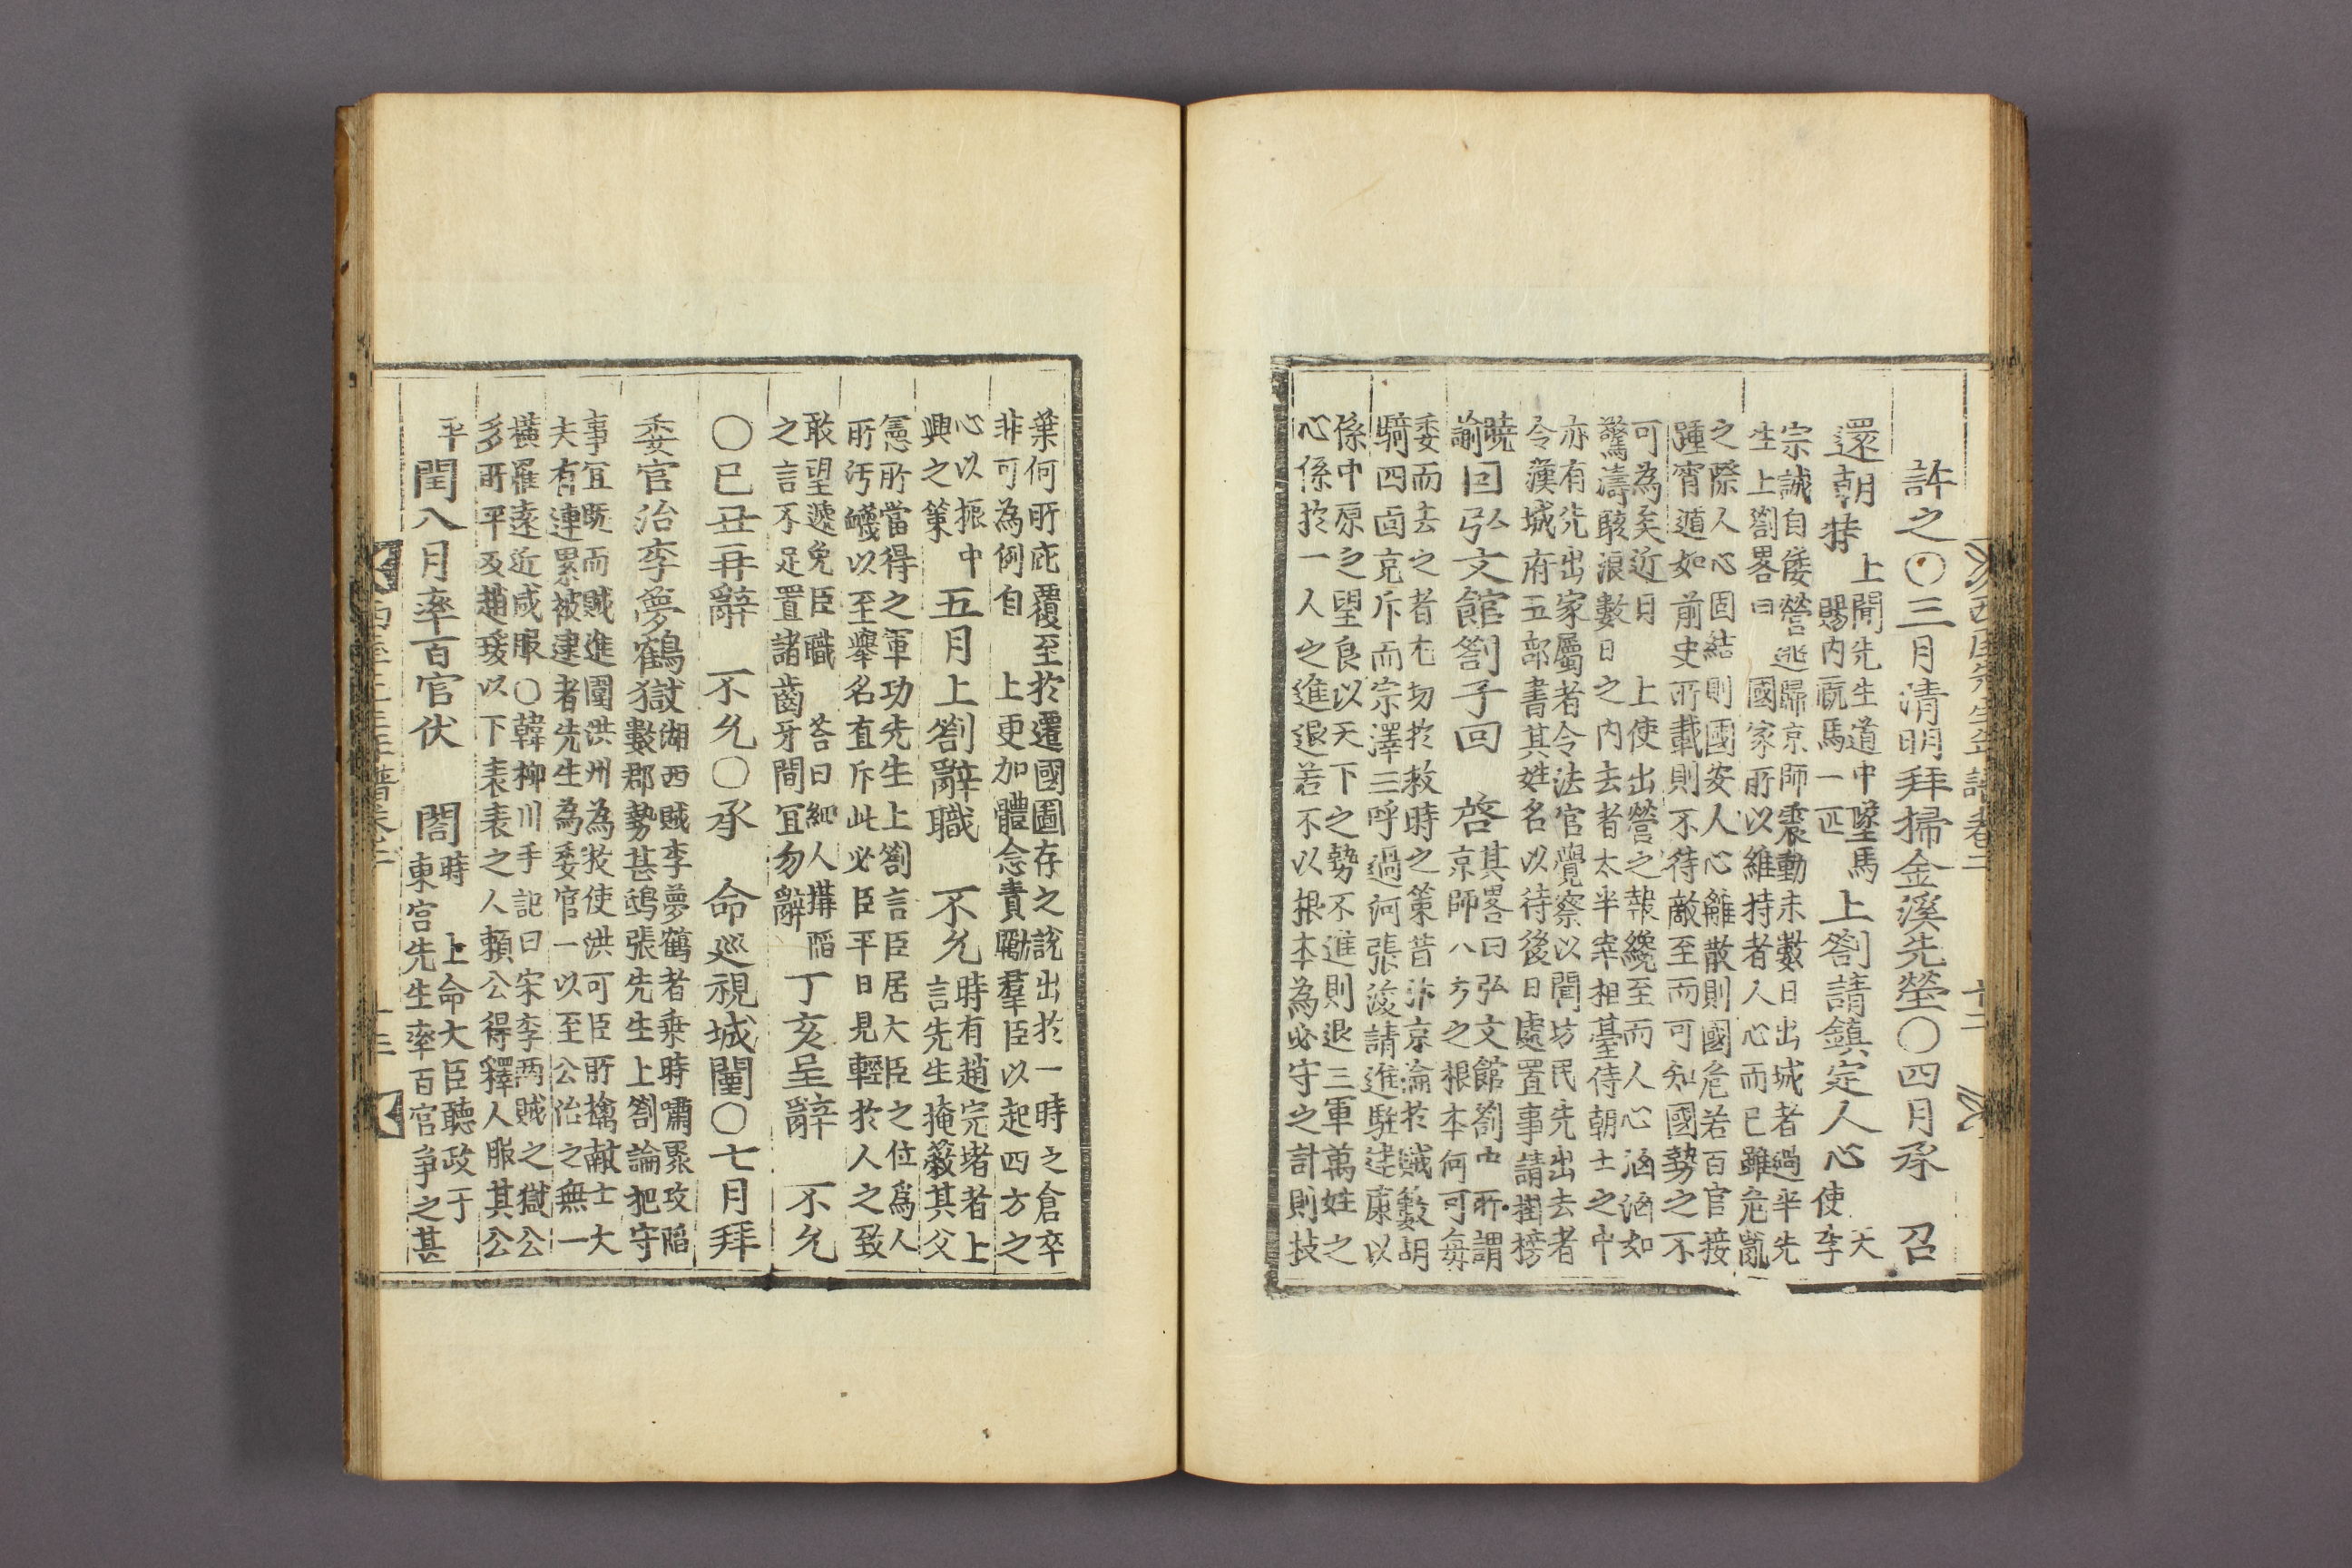 西厓先生年譜卷二 十二
許之〇三月淸明拜掃金溪先塋〇四月承 召
還朝 上聞先生道中墜馬
特 賜內廐馬一匹 上劄請鎭定人心 天
使李
宗誠自倭營逃歸京師震動未數日出城者過半先
生上劄畧曰 國家所以維持者人心而已雖危亂
之際人心固結則國安人心離散則國危若百官接
踵宵遁如前史所載則不待敵至而可知國勢之不
可為矣近日 上使出營之報纔至而人心洶洶如
驚濤駭浪數日之內去者太半宰相臺侍朝士之中
亦有先出家屬者令法官覺察以聞坊民先出去者
令漢城府五部書其姓名以待後日處置事請掛榜
曉
諭 因弘文館劄子回 啓 其畧曰弘文館劄中所謂
京師八方之根本何可每
委而去之者尤切於救時之策昔汴京淪於賊藪胡
騎四面充斥而宗澤三呼過河張浚請進駐建康以
係中原之望良以天下之勢不進則退三軍萬姓之
心係於一人之進退若不以根本為必守之計則枝
葉何所庇覆至於遷國圖存之說出於一時之倉卒
非可為例自 上更加體念責勵羣臣以起四方之
心以振中
興之策 五月上劄辭職 不允 時有趙完堵者上
言先生掩蔽其父
憲所當得之軍功先生上劄言臣居大臣之位爲人
所汚衊以至擧名直斥此必臣平日見輕於人之致
敢望遞免臣職 荅曰細人搆陷
之言不足置諸齒牙間宜勿辭 丁亥呈辭 不允
〇已丑再辭 不允〇承 命巡視城闉〇七月拜
委官治李夢鶴獄 湖西賊李夢鶴者乘時嘯聚攻陷
數郡勢甚鴟張先生上劄論犯守
事宜旣而賊進圍洪州為牧使洪可臣所擒馘士大
夫有連累被逮者先生為委官一以至公治之無一
橫罹遠近咸服〇韓柳川手記曰宋李两賊之獄公
多所平反趙瑗以下表表之人賴公得釋人服其公
平 閏八月率百官伏 閤 時 上命大臣聽政于
東宮先生率百官爭之甚